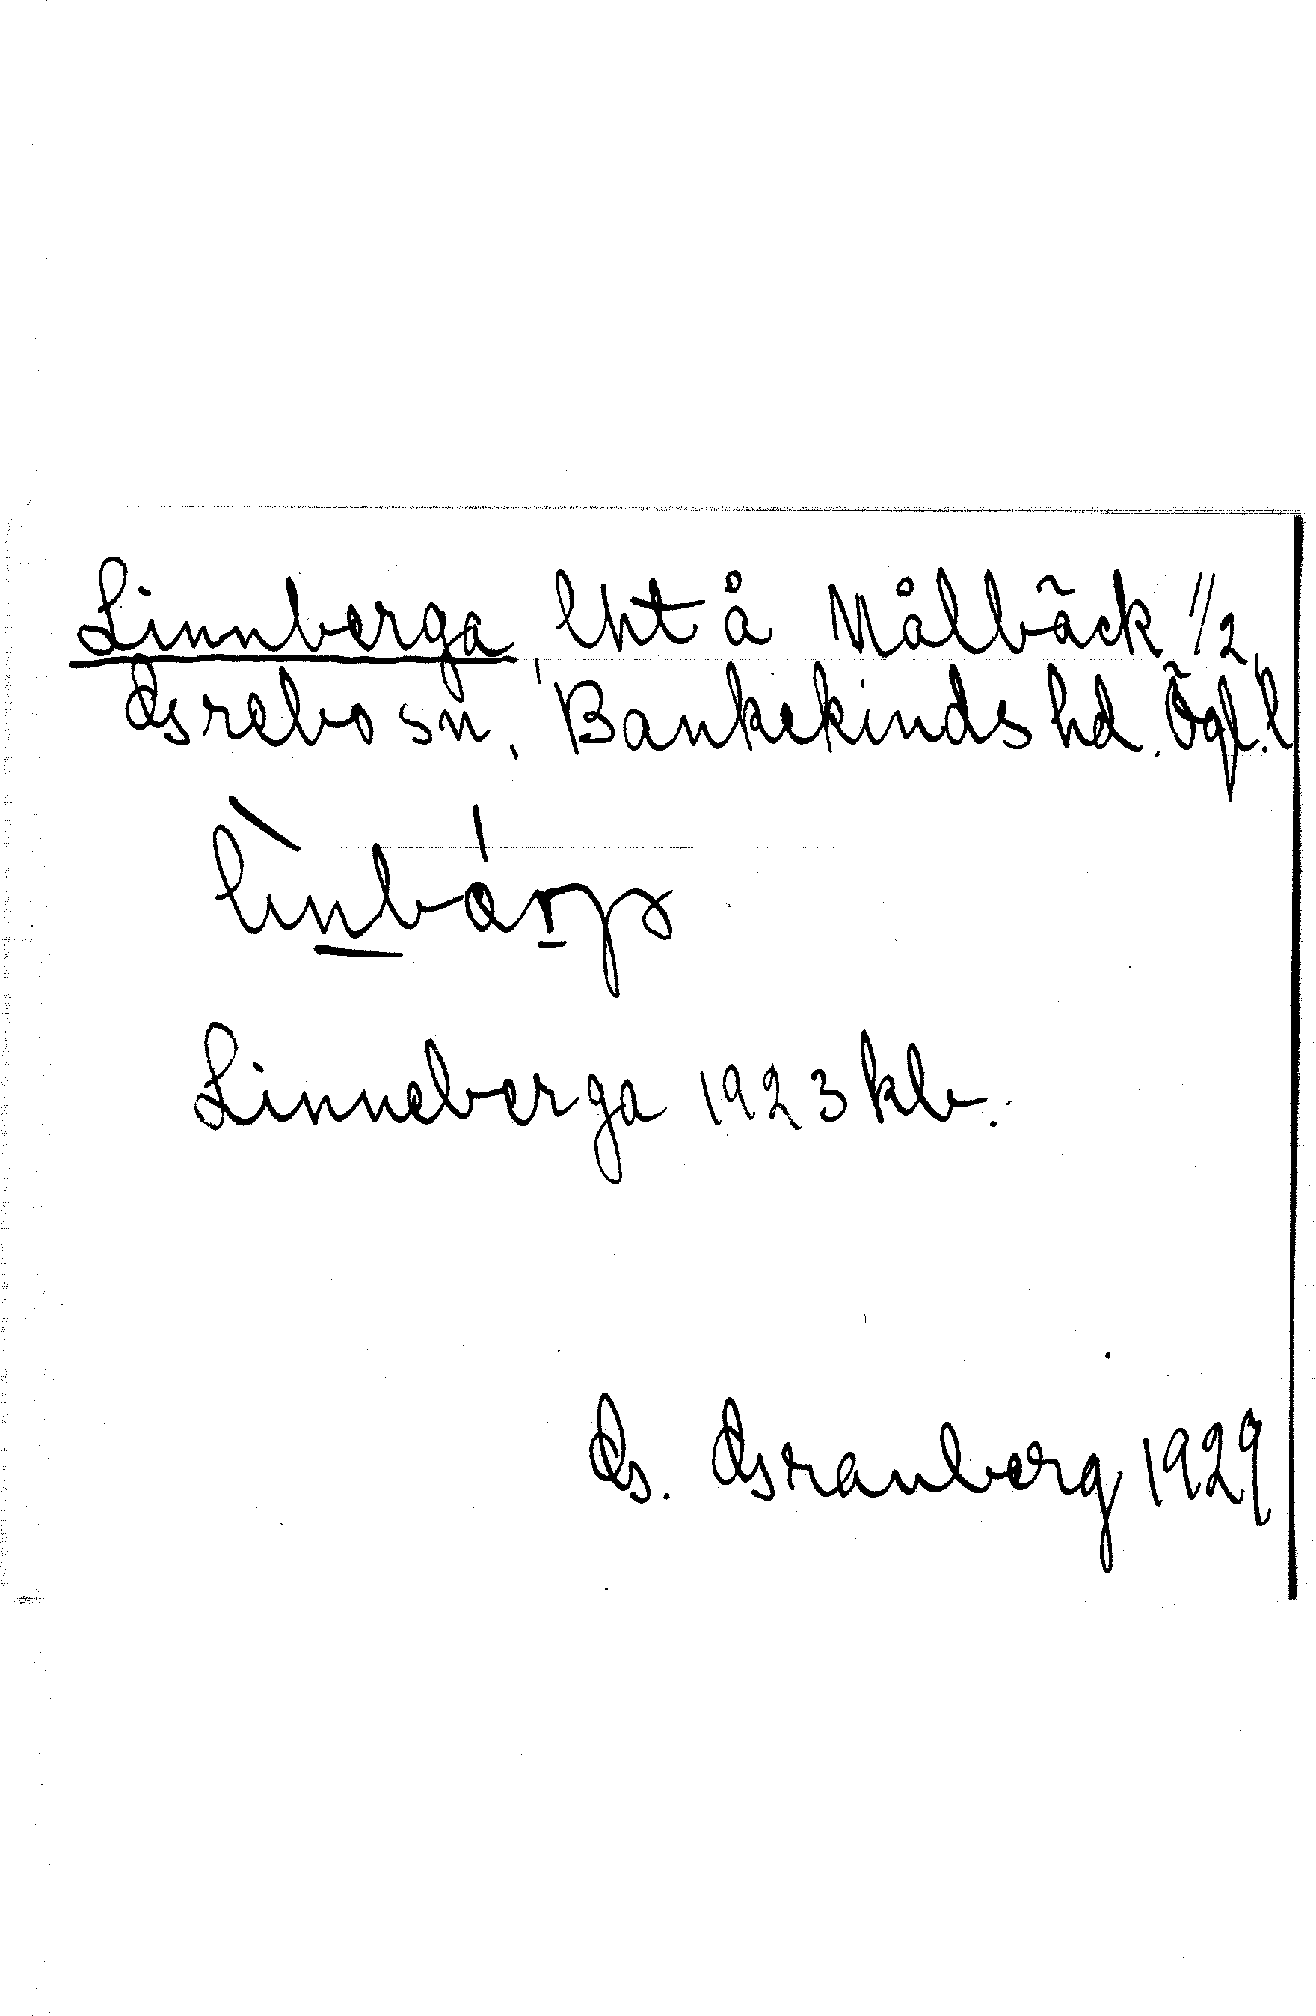 Linnberga, lht å Målbäck 1/2,
Grebo sn, Bankekinds hd. Ögl. l
lìnbárjа
Linneberga 1923 kb.
G. Granberg 1929